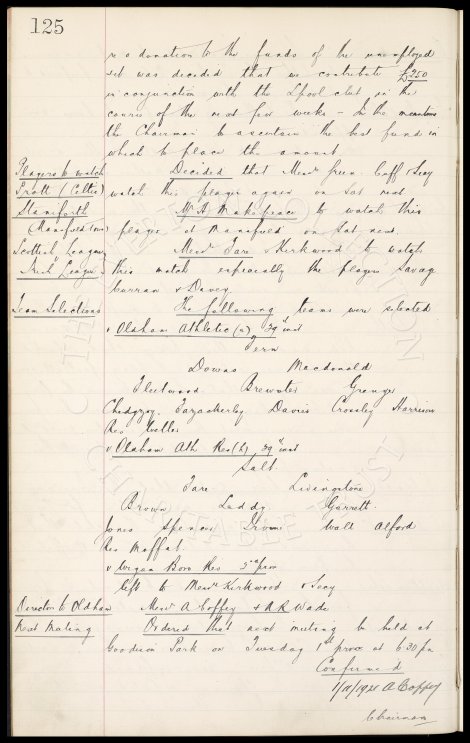 125
re a donation to the funds of the unemployed
it was decided that we contribute £250
in conjunction with the Lpool club in the
course of the next few weeks - In the meantime
the Chairman to ascertain the best fund in
which to place the amount
Players to watch
Pratt (Celtic)
Decided that Messrs Green Coffey & Seay
watch this player again on Sat next
Staniforth
(Mansfield Town)
Mr H. Makepeace to watch this
player at Mansfield on Sat next.
Scottish League v
Irish League
Messrs Fare & Kirkwood to watch
this match especially the players Savage
Curran & Davey
Team Selections
The following teams were selected
v Oldham Athletic (a) 29th inst
Fern
Downs Macdonald
Fleetwood Brewster Grenyer
Chedgzoy Fazackerley Davies Crossley Harrison
Res Weller
v Oldham Ath Res (h) 29th inst
Salt.
Fare Livingstone
Brown Leddy Garratt.
Jones Spencer Irvine Wall Alford
Res Moffat.
v Wigan Boro Res 5th prox
left to Messrs Kirkwood & Seay
Director to Oldham
Messrs A Coffey & A.R. Wade
Next Meeting
Ordered that next meeting be held at
Goodison Park on Tuesday 1st prox at 6.30 pm
Confirmed
1/11/1921 A Coffey
Chairman
THE
EVERTON
COLLECTION
CHARITABLE TRUST